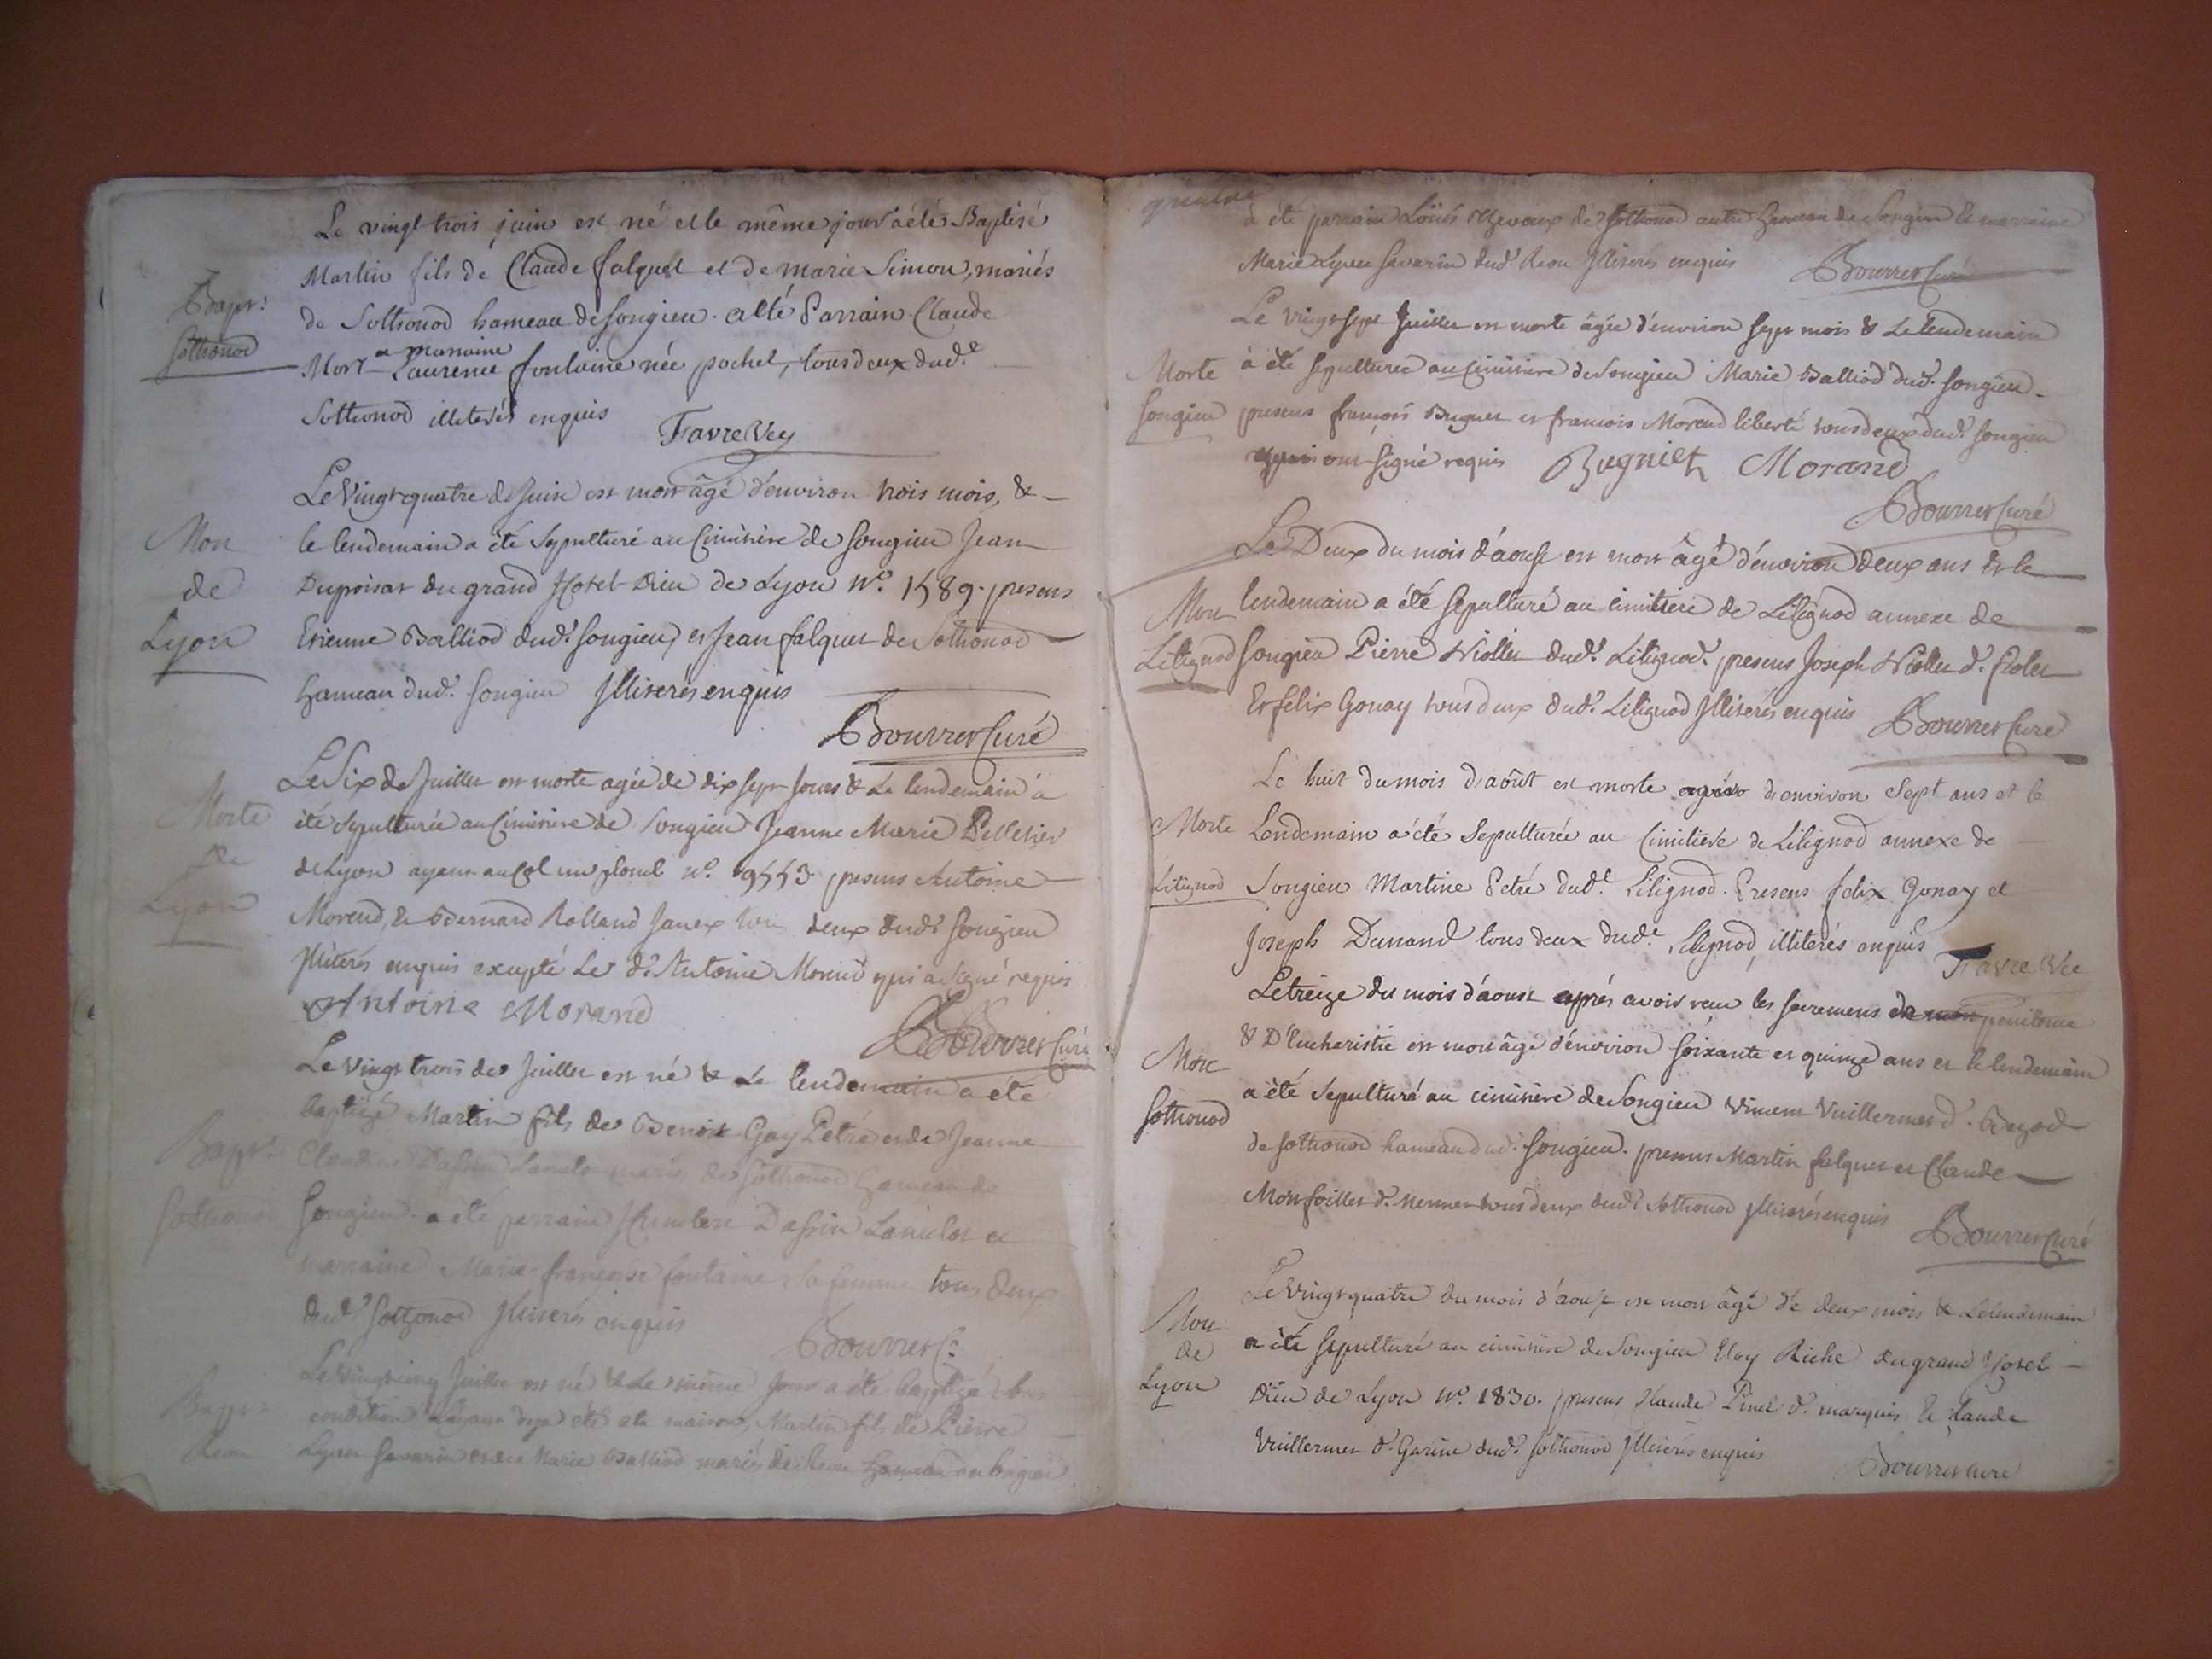 Le vingt-trois juin est né et le même jour a été Baptisé
Martin fils de Claude falquet et de marie Simon, mariés
Bapt:
Sothonod
de Sothonod hameau de songieu. a été Parrain Claude
Mort et marraine Laurence fontaine née pochet, tous deux dud.t
Sothonod illiterés enquis
Favre Vic
Le Vingt quatre de Juin est mort âgé d'environ trois mois, &
Mort
de
Lyon
le lendemain a été Sepulturé au Cimitière de songieu Jean
Dupoisat du grand Hotel-Dieu de Lyon N.o 1589. presens
Etienne Balliod dud.t songieu, et Jean falquet de Sothonod
hameau dud.t songieu Illiterés enquis
Bourret Curé
Le Six de Juillet est morte agée de dix sept Jours & Le lendemain à
Morte
de
Lyon
été Sepulturée au Cimitière de Songieu Jeanne Marie Pelletier
de Lyon ayant au Col un plomb N.o 9553 presens Antoine
Morend, & Bernard Rolland Janex tous deux dud.t songieu
Illiterés enquis excepté Le d.t Antoine Morend qui a signé requis
Antoine Morand
Bourret Curé
Le Vingt trois de Juillet est né & Le lendemain a été
baptizé Martin fils de Benoit Gay Petré et de Jeanne
Bapt:
Sothonod
Claudine Dassin Lancelot mariés de Sothonod hameau de
Songieu. a été parrain Humbert Dassin Lancelot et
marraine Marie françoise fontaine sa femme tous deux
dud.t Sothonod Illiterés enquis
Bourret C.
Le Vingt cinq Juillet est né & Le même Jour a été baptizé
Bapt:
condition L'ayant deja été a la maison, Martin fils de Pierre
Lyvet Savarin et de Marie Balliod mariés de hameau de songieu
a été parrain Loüis de Sothonod autre hameau de Songieu & marraine
Marie Lyvet Savarin dud.t Illiterés enquis
Bourret Curé
Le Vingt Sept Juillet est morte âgée d'environ Sept mois & Le lendemain
Morte
Songieu
à été Sepulturée au Cimitière de Songieu Marie Balliod dud.t Songieu
presens françois Buguet et francois Morend liberté tous deux dud.t songieu
qui ont signé requis
Bugniet Morand
Bourret Curé
Le Deux du mois d'aoust est mort âgé d'environ deux ans & le
Mort
Lilignod
lendemain a été sepulturé au cimitière de Lilignod annexe de
Songieu Pierre Violler dud.t Lilignod. presens Joseph Violler d.t
Et felix Gonay tous deux dud.t Lilignod Illiterés enquis
Bourret Curé
Le huit du mois d'août est morte agée d'environ Sept ans et le
Morte
Lilignod
Lendemain a été Sepulturée au Cimitière de Lilignod annexe de
Songieu Martine Petré dud.t Lilignod. Presens felix Gonay et
Joseph Dunand tous deux dud.t Lilignod, illiterés enquis
Favre Vic
Le treize du mois d'aoust aprés avoir recu les sacremens de penitence
Mort
Sothonod
& D'Eucharistie est mort âgé d'environ soixante et quinze ans et le lendemain
a été Sepulturé au cimitière de Songieu Vincent Vuillermet d.t
de Sothonod hameau dud.t Songieu. presens Martin falquet et Claude
Montfoillet d.t Mermet tous deux dud.t Sothonod Illiterés enquis
Bourret Curé
Le Vingt quatre du mois d'aoust est mort âgé de deux mois & Le lendemain
Mort
de
Lyon
a été Sepulturé au cimitière de Songieu Riche du grand Hotel
Dieu de Lyon N.o 1830. presens Claude Pinet d.t marquis & Claude
Vuillermet d.t Garine dud.t Sothonod Illiterés enquis
Bourret Curé